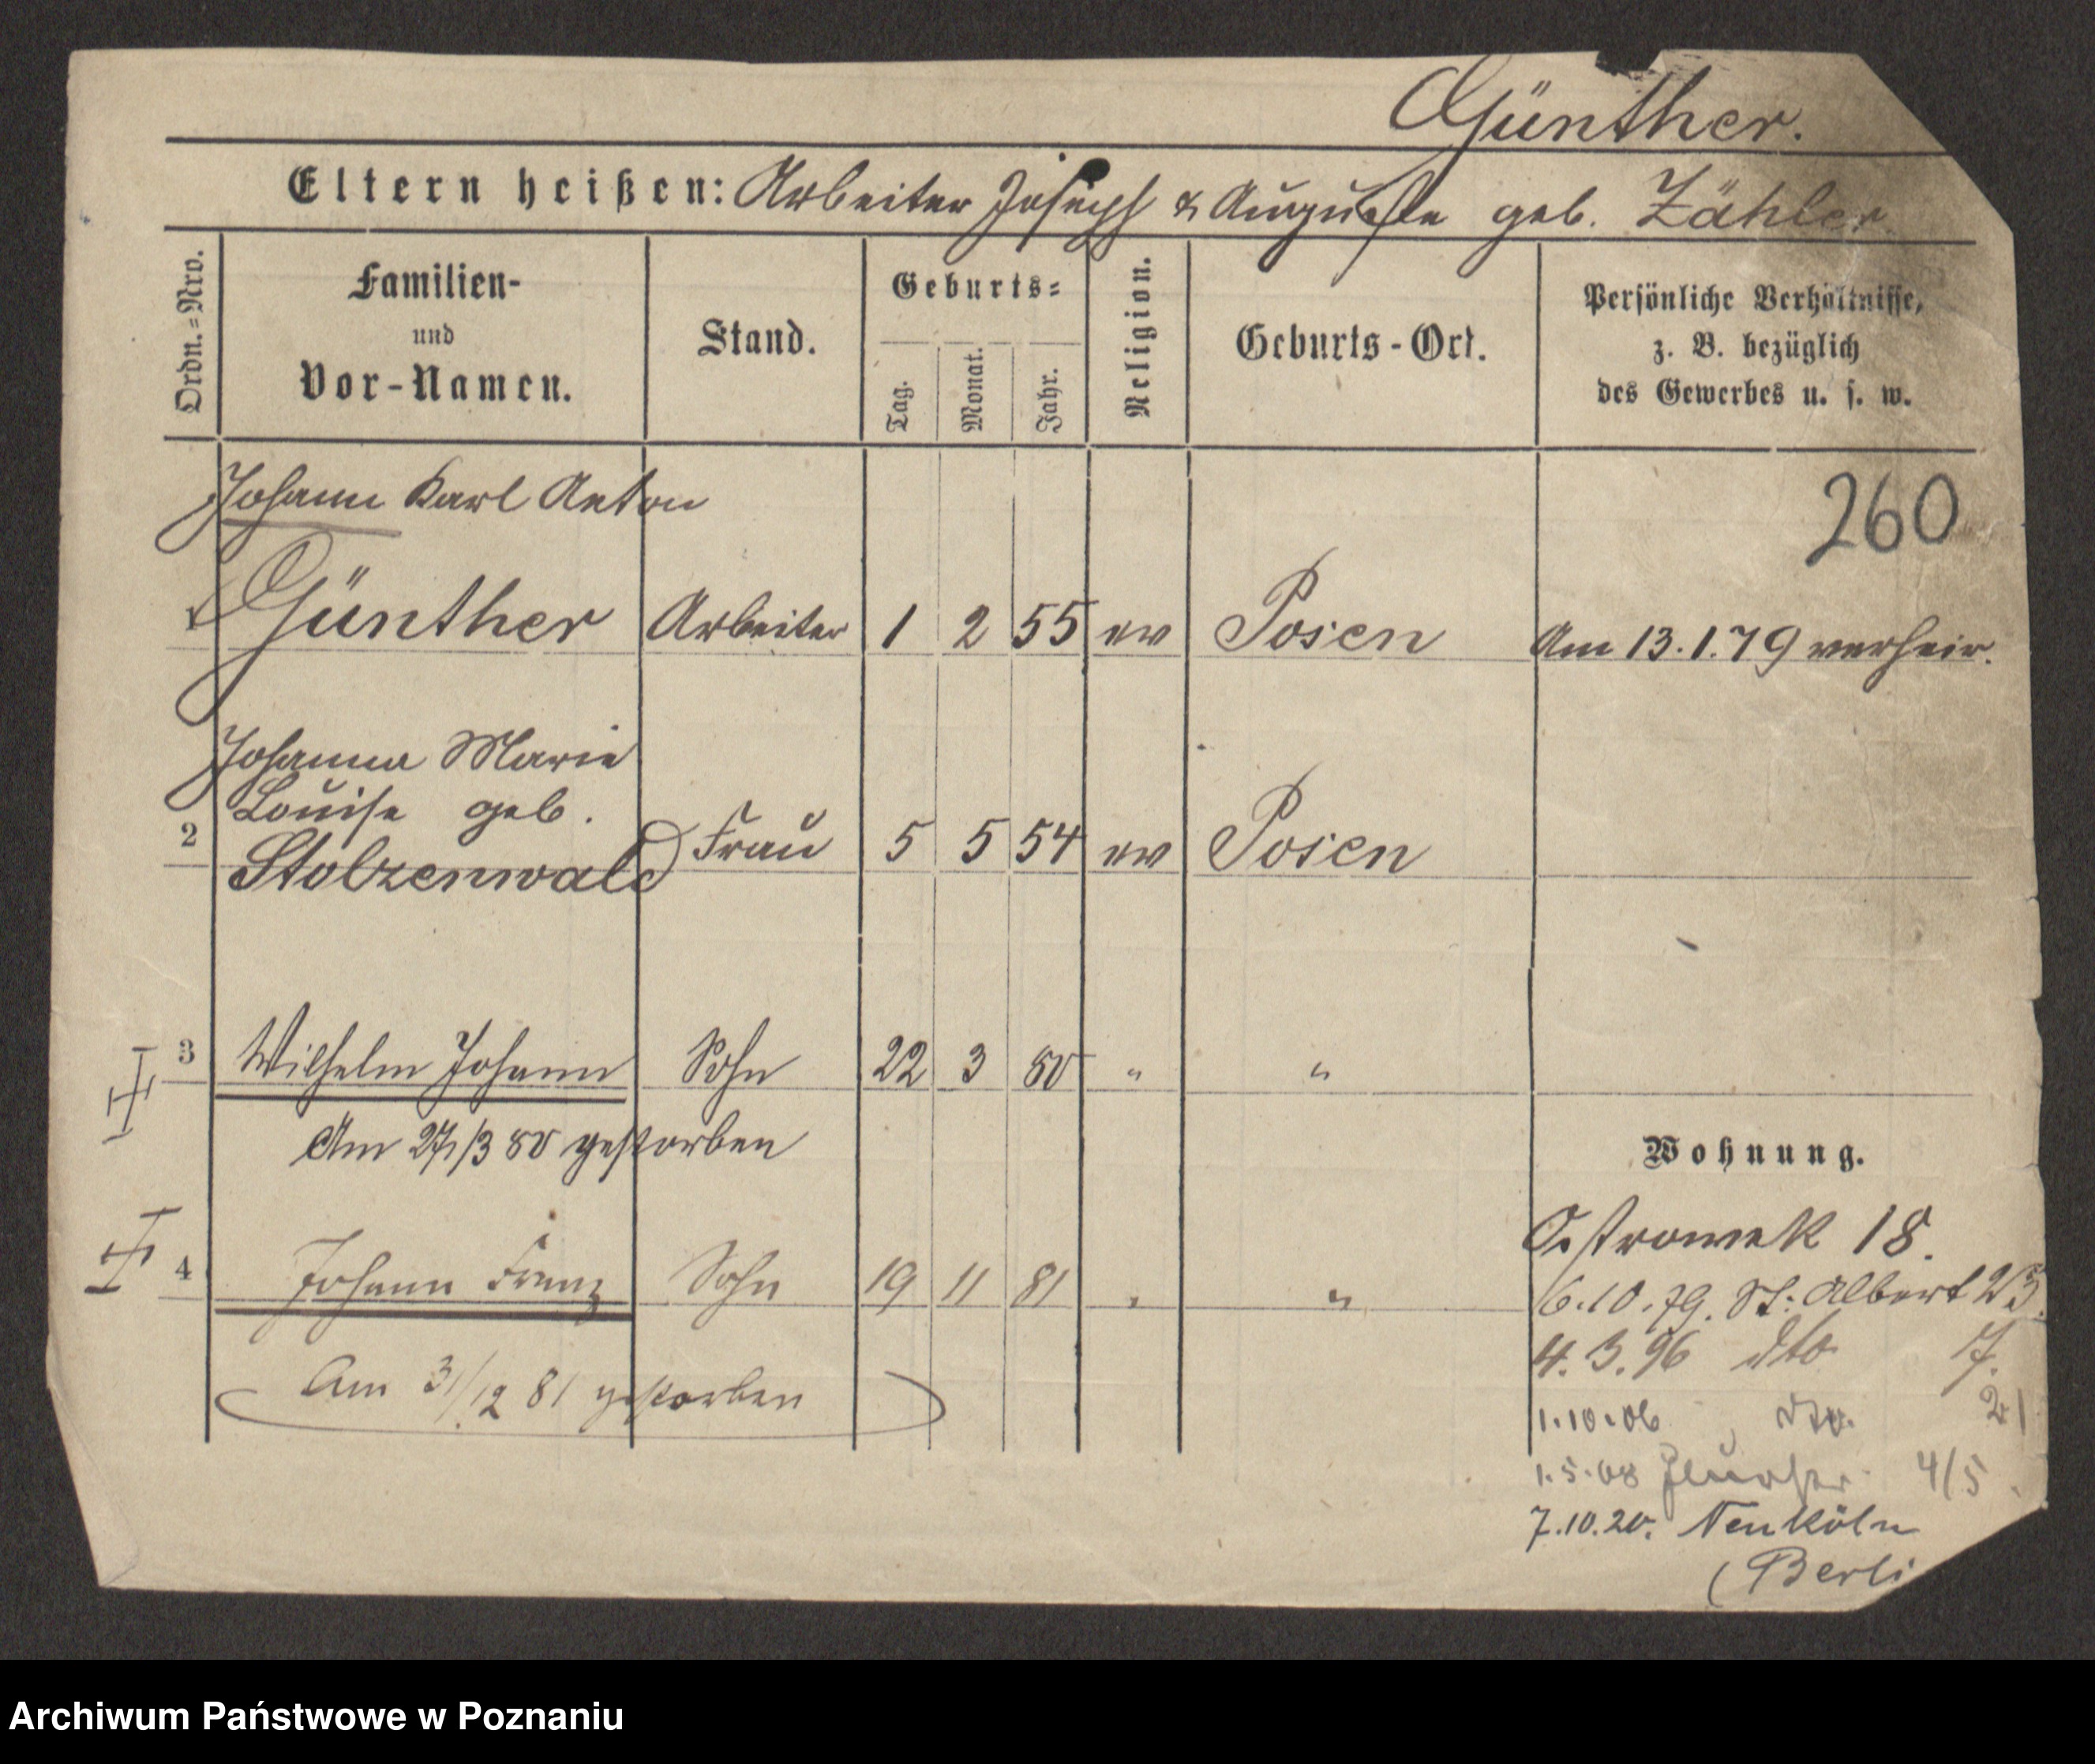 Günther.
Eltern heißen: Arbeiter Joseph & Auguste geb. Zähler.
Ordn.=Nro.
Familien-
und
Vor-Namen.
Stand.
Geburts=
Tag.
Monat.
Jahr.
Religion.
Geburts-Ort.
Persönliche Verhältnisse,
z. B. bezüglich
des Gewerbes u. s. w.
260
Johann Karl Anton
1 Günther Arbeiter 1 2 55 ev Posen Am 13.1.79 verheir.
Johanna Marie
Louise geb.
2 Stolzenwald Frau 5 5 54 ev Posen
3 Wilhelm Johann Sohn 22 3 80 " "
Am 27/3 80 gestorben
Wohnung.
Ostrowek 18.
4 Johann Franz Sohn 19 11 81 " "
6.10.79. St: Albert 23.
4.3.96 dto 7.
Am 31/12 81 gestorben
1.10.06 dto. 21
1.5.08 4/5
7.10.20. Neuköln
(Berli
Archiwum Państwowe w Poznaniu